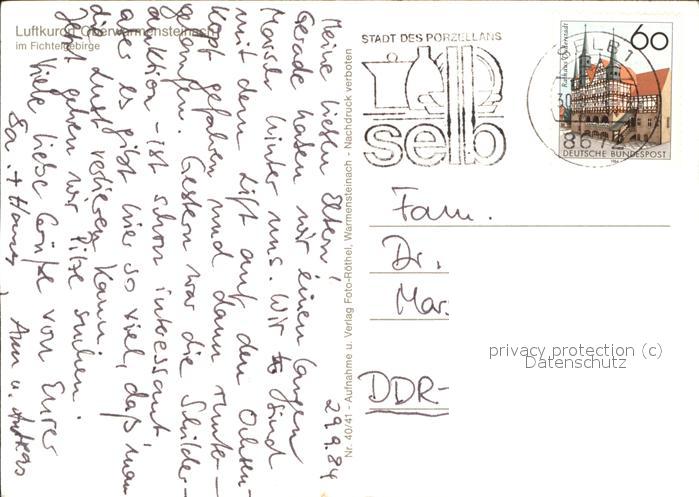 Luftkurort Oberwarmensteinach
im Fichtelgebirge
29.9.84
Meine lieben Eltern!
Gerade haben wir einen langen
Marsch hinter uns. Wir sind
mit dem Lift auf den Ochsen-
kopf gefahren und dann runter-
gelaufen. Gestern war die
es gibt hier so viel, daß man
die Lust verlieren kann.
Jetzt gehen wir Pilze suchen.
Viele liebe Grüße von Eurer
Ann u. Andreas
Nr. 40/41 - Aufnahme u. Verlag Foto-Röthel, Warmensteinach - Nachdruck verboten
STADT DES PORZELLANS
selb
SELB 1
8672
60
DEUTSCHE BUNDESPOST
Fam.
Dr.
Mar
DDR-
privacy protection (c)
Datenschutz